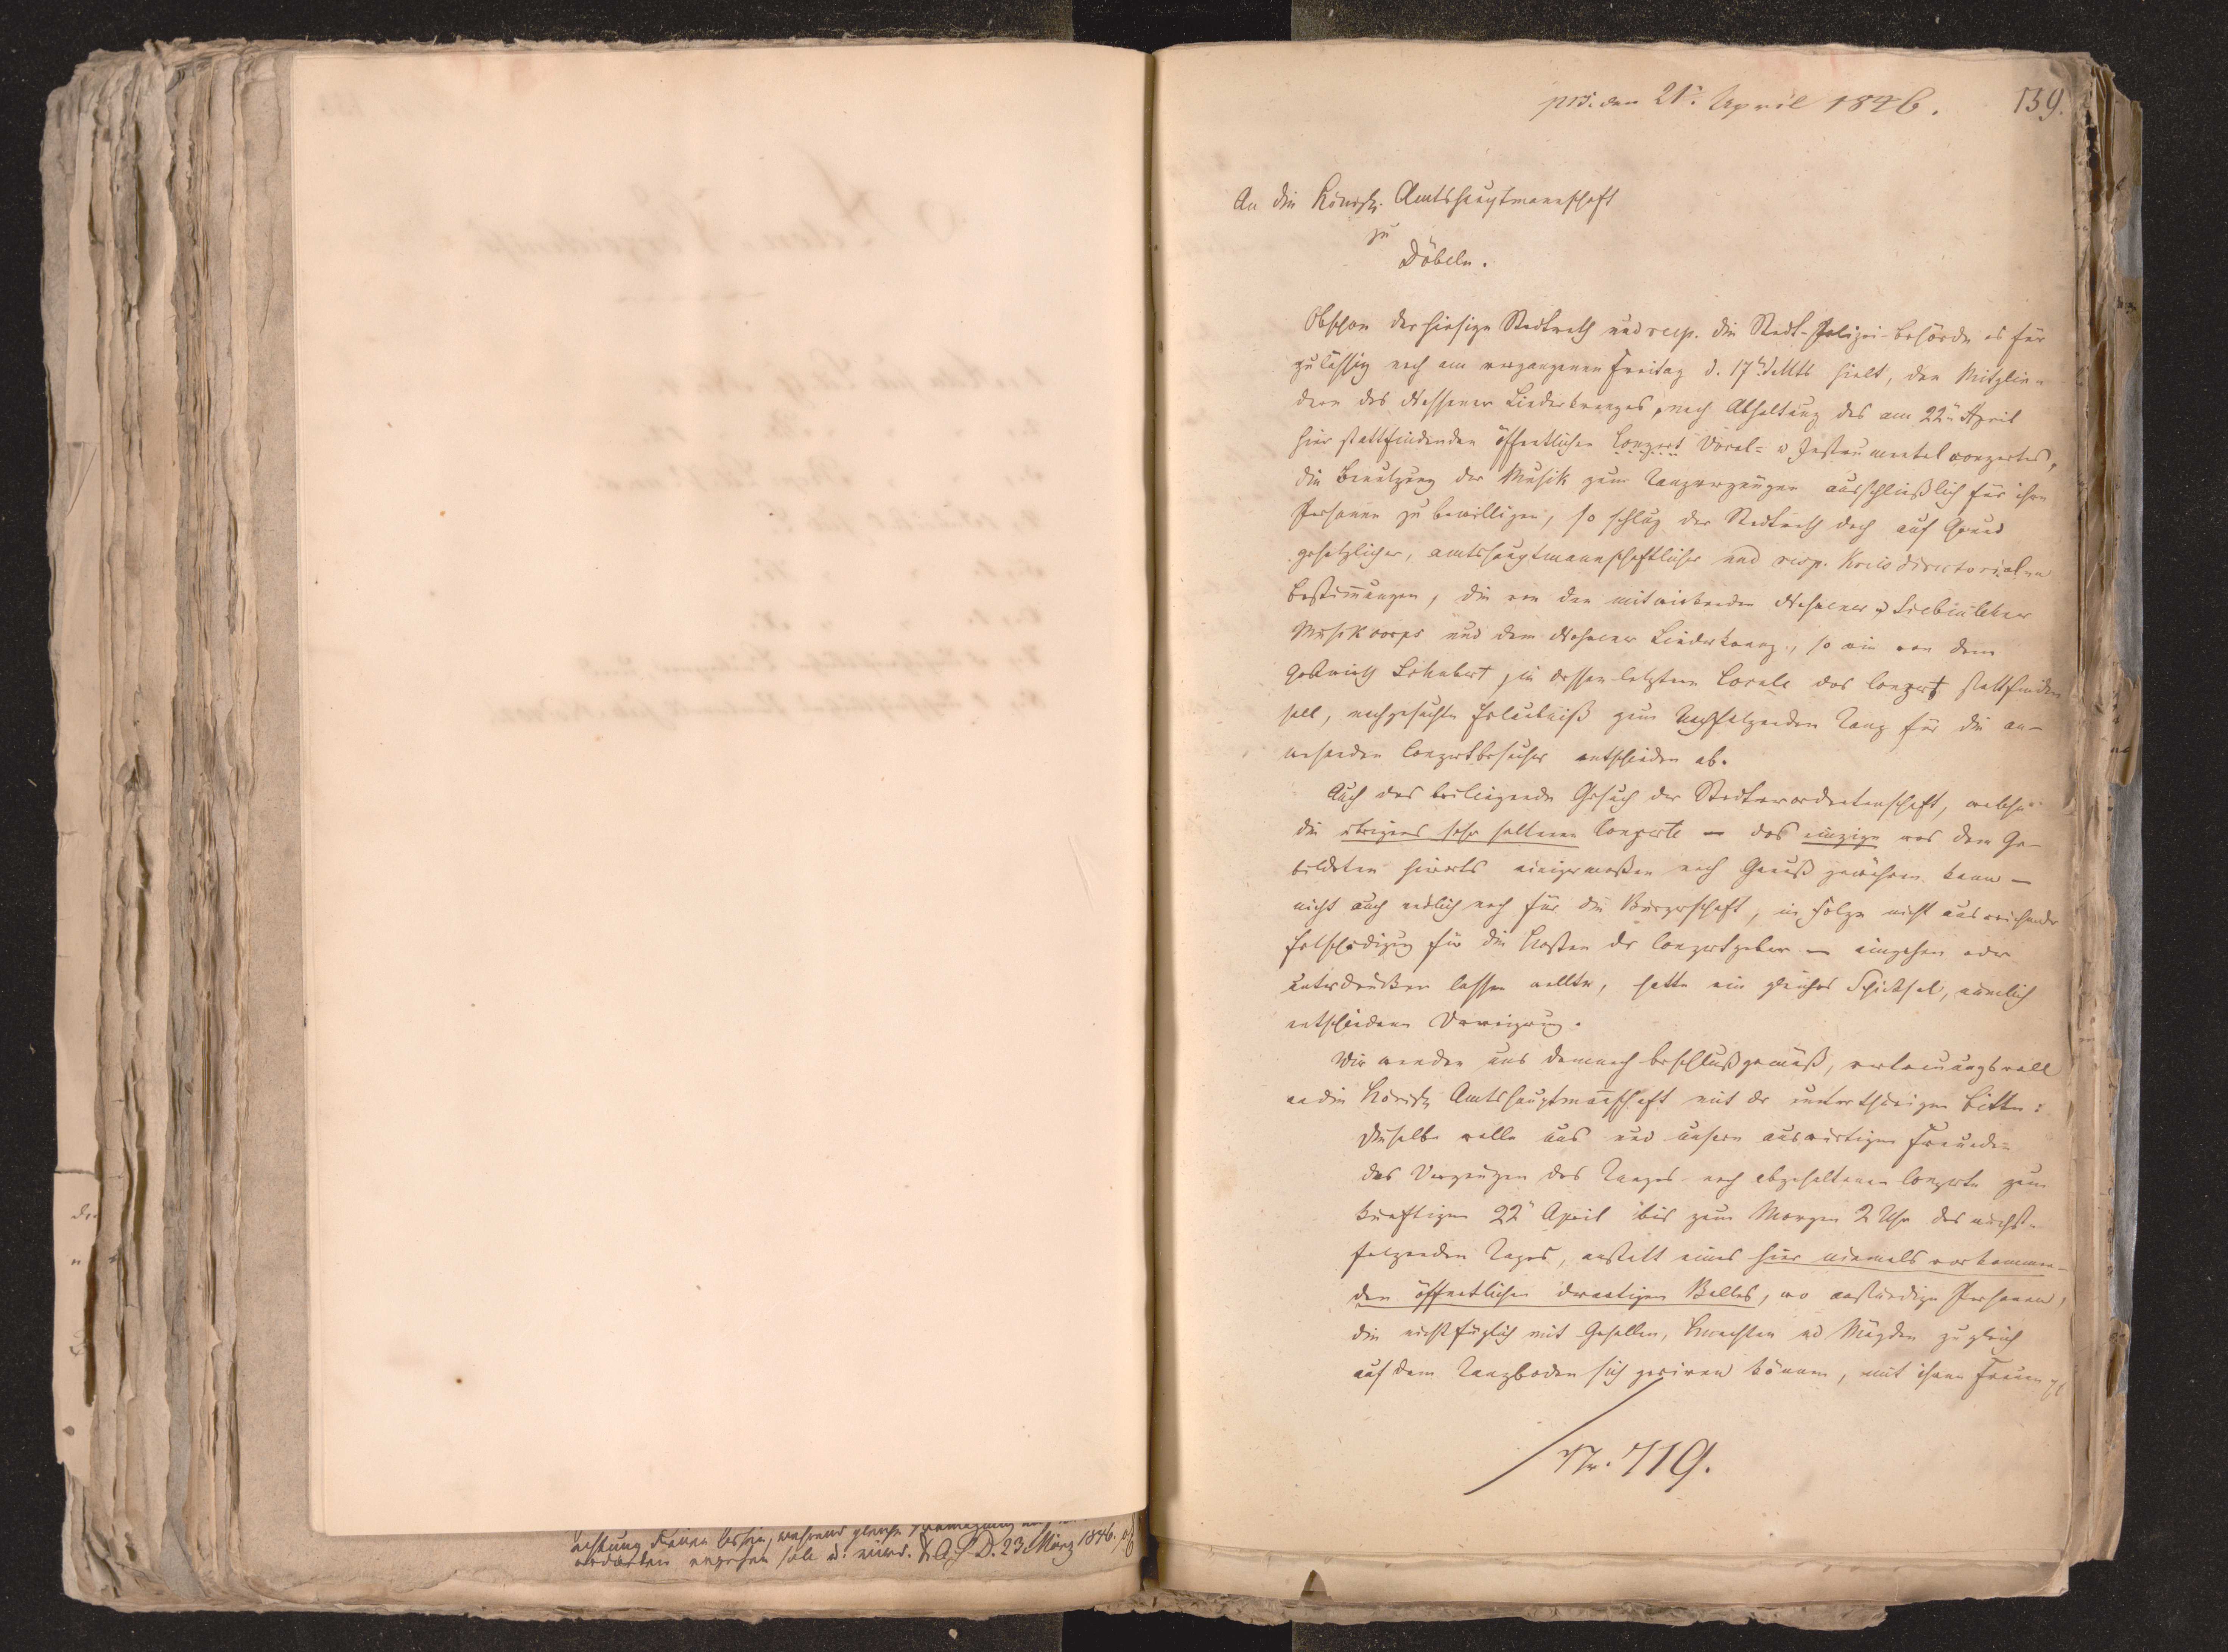 prs. den 21. April 1846.
139.
An die Königl. Amtshauptmannschaft
zu
Döbeln.
Obschon der hiesige Stadtrath und resp. die Stadt-Polizei-behörde es für
zulässig noch am vergangenen Freitag d. 17. d. Mts hielt, den Mitglie-
dern des Nossener Liederkranzes, nach Abhaltung des am 22n April
hier stattfindenden öffentlichen Conzert Vocal- u Instrumentalconzertes,
die Benutzung der Musik zum Tanzvergnügen ausschließlich für ihre
Personen zu bewilligen, so schlug der Stadtrath doch auf Grund
gesetzlicher, amtshauptmannschaftlicher und resp. Kreisdirectorialen
Bestimmungen, die von den mitwirkenden Nossener u Siebenlehner
Musikcorps und dem Nossener Liederkranz, so wie von dem
Gastwirth Schubert, in dessen letztern Locale das Conzert stattfinden
soll, nachgesuchte Erlaubniß zum nachfolgenden Tanz für die an-
wesenden Conzertbesucher entschieden ab.
Auch das beiliegende Gesuch der Stadtverordnetenschaft, welche
die übrigens sehr seltenen Conzerte — das einzige was dem Ge-
bildeten hierorts einigermaßen noch Genuß gewähren kann —
nicht auch endlich noch für die Bürgerschaft, in Folge nicht ausreichender
Entschädigung für die Kosten der Conzertgeber — eingehen oder
unterdrücken lassen wollte, hatte ein gleiches Schicksal, nämlich
entschiedene Verweigerung.
Wir wenden uns demnach beschlußgemäß, vertrauungsvoll
an die Königl. Amtshauptmannschaft mit der unterthänigen Bitte:
Dieselbe wolle uns und unsern auswärtigen Freunden
das Vergnügen des Tanzes nach abgehaltenen Conzerte zum
künftigen 22n April bis zum Morgen 2 Uhr des nächst-
folgenden Tages, anstatt eines hier niemals vorkommen-
den öffentlichen derartigen Balles, wo anständige Personen,
die nicht füglich mit Gesellen, Knechten und Mägden zugleich
auf dem Tanzboden sich geriren können, mit ihren Frauen
Nr. 719.
D. 23. März 1846.